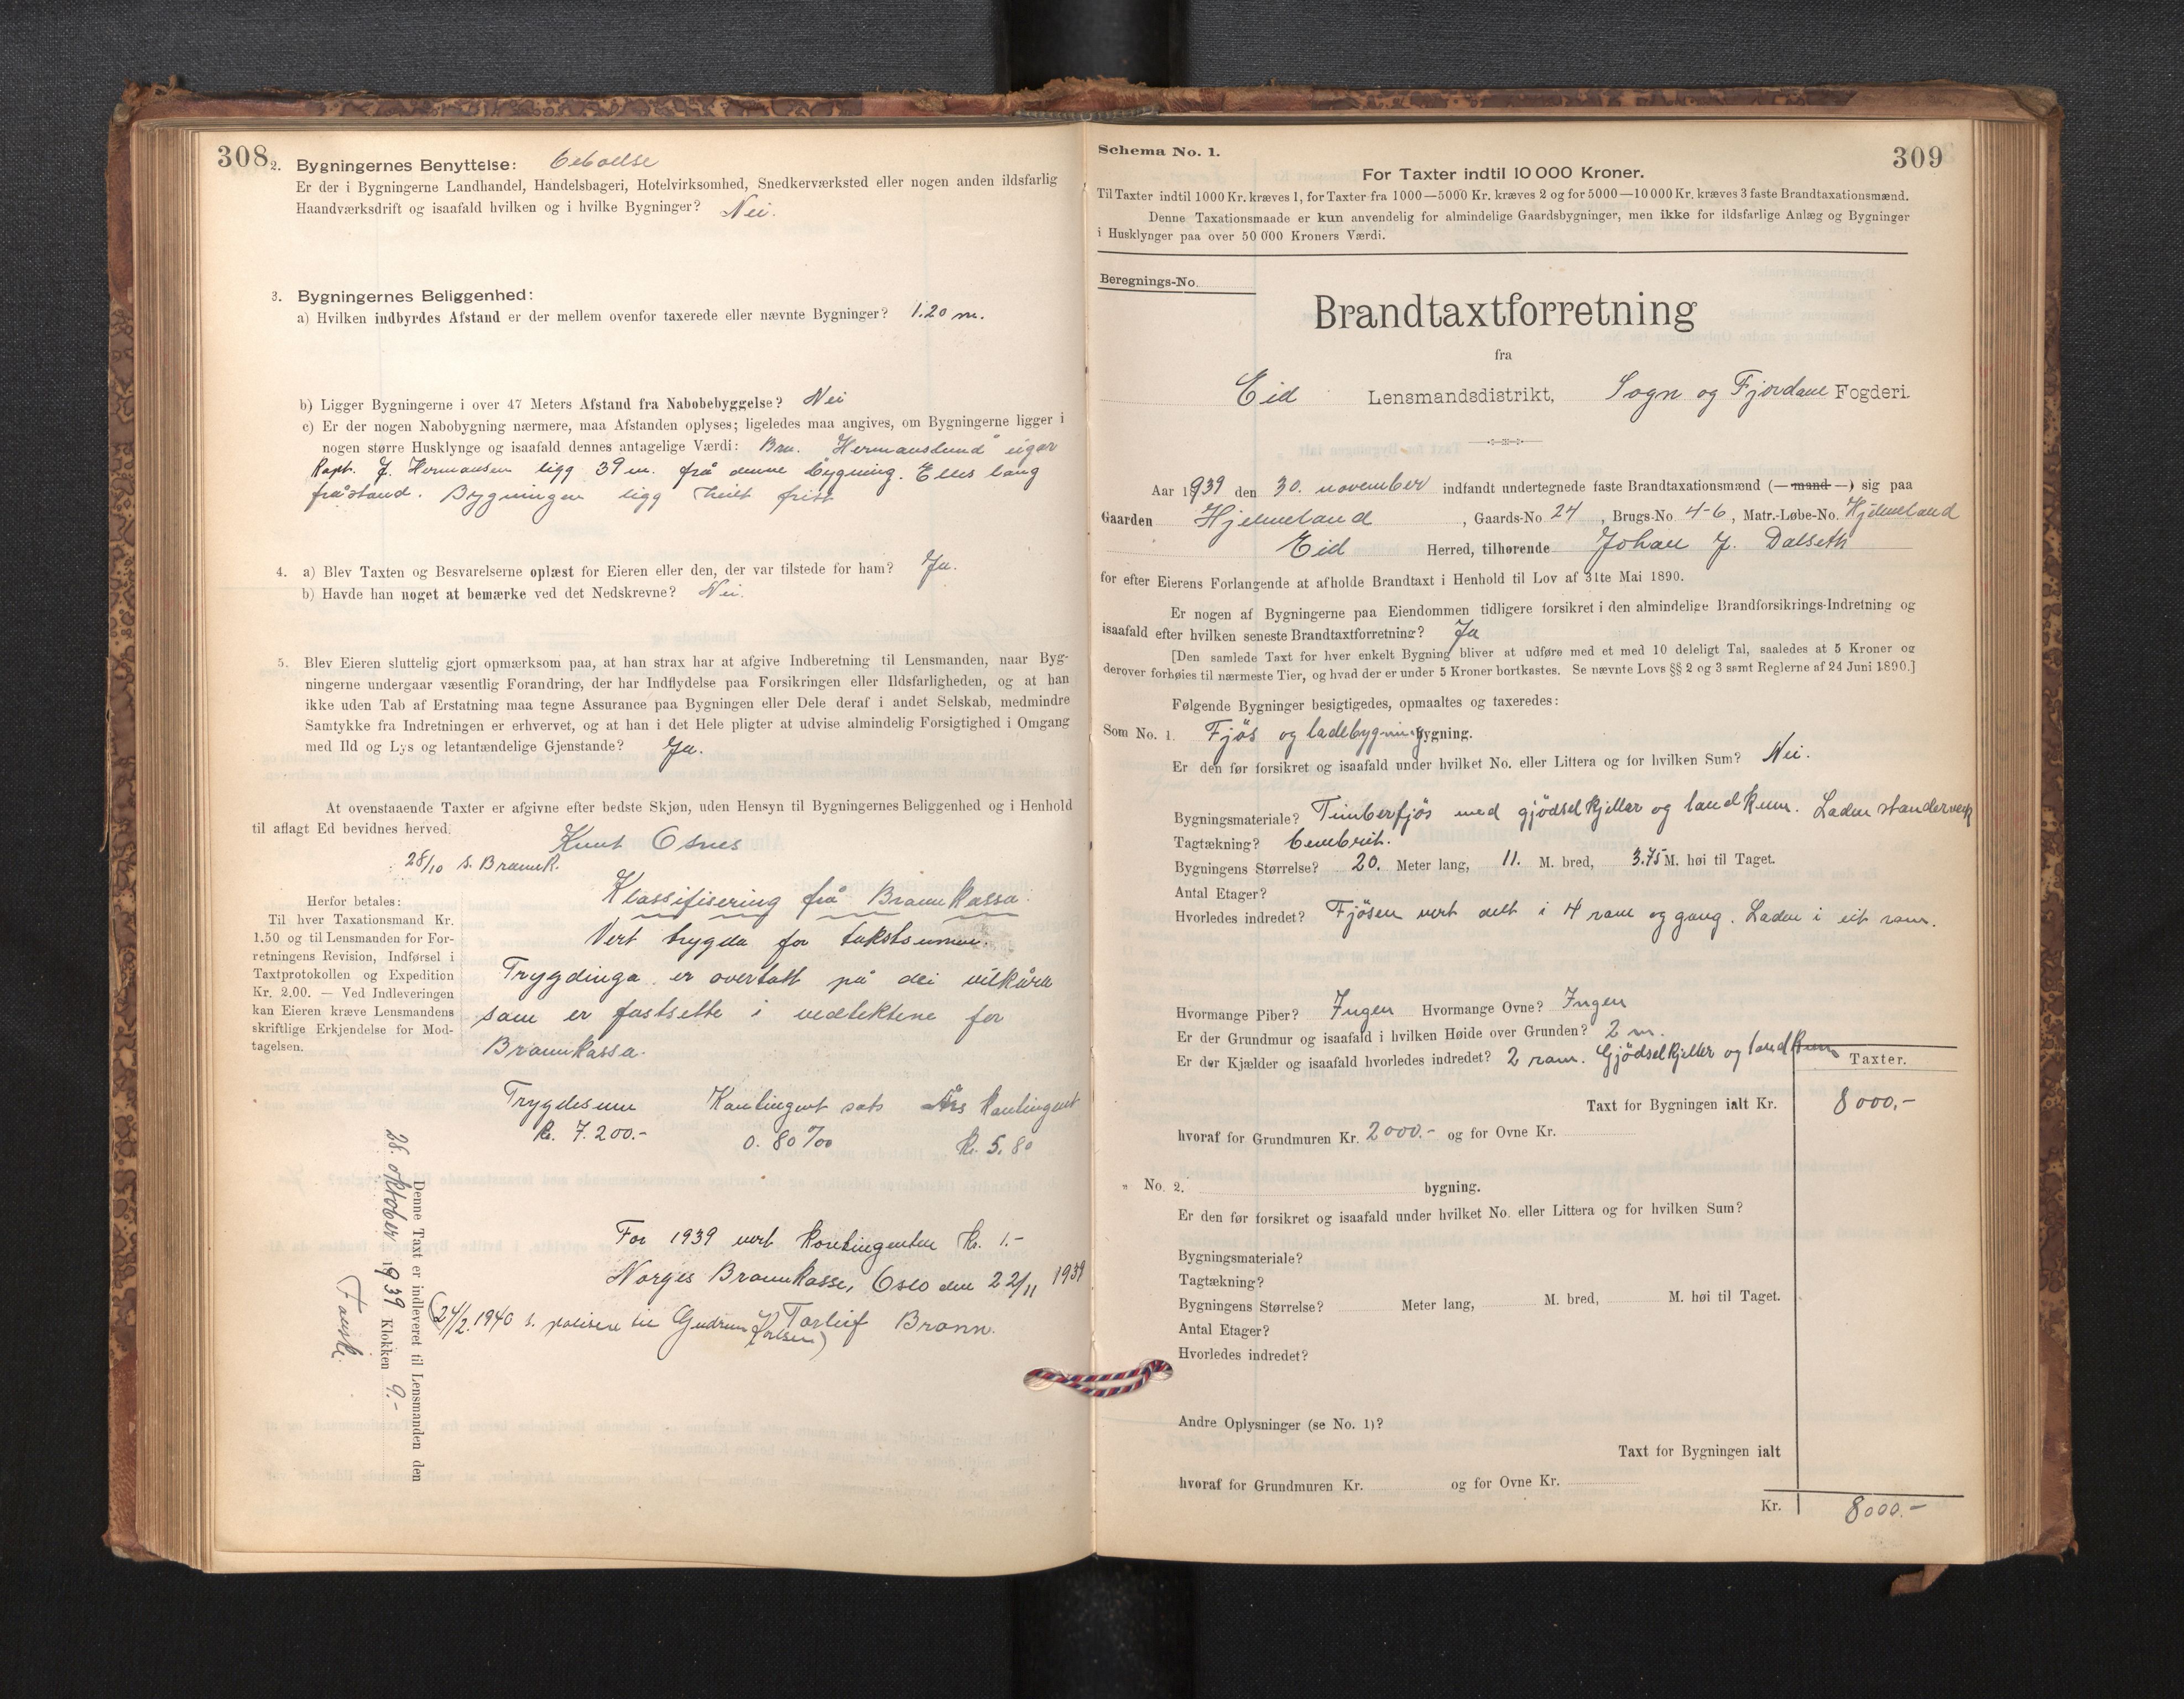 308
2. Bygningernes Benyttelse: beboelse
Er der i Bygningerne Landhandel, Handelsbageri, Hotelvirksomhed, Snedkerværksted eller nogen anden ildsfarlig
Haandværksdrift og isaafald hvilken og i hvilke Bygninger? Nei.
3. Bygningernes Beliggenhed:
a) Hvilken indbyrdes Afstand er der mellem ovenfor taxerede eller nævnte Bygninger? 1.20 m.
b) Ligger Bygningerne i over 47 Meters Afstand fra Nabobebyggelse? Nei
c) Er der nogen Nabobygning nærmere, maa Afstanden oplyses; ligeledes maa angives, om Bygningerne ligger i
nogen større Husklynge og isaafald dennes antagelige Værdi: Bru. "Hermanslund" eigar
Kapt. J. Hermansen ligg 39 m. frå denne bygning. Elles lang
fråstand. Bygningen ligg heilt fritt
4. a) Blev Taxten og Besvarelserne oplæst for Eieren eller den, der var tilstede for ham? Ja.
b) Havde han noget at bemærke ved det Nedskrevne? Nei.
5. Blev Eieren sluttelig gjort opmærksom paa, at han strax har at afgive Indberetning til Lensmanden, naar Byg-
ningerne undergaar væsentlig Forandring, der har Indflydelse paa Forsikringen eller Ildsfarligheden, og at han
ikke uden Tab af Erstatning maa tegne Assurance paa Bygningen eller Dele deraf i andet Selskab, medmindre
Samtykke fra Indretningen er erhvervet, og at han i det Hele pligter at udvise almindelig Forsigtighed i Omgang
med Ild og Lys og letantændelige Gjenstande? Ja.
At ovenstaaende Taxter er afgivne efter bedste Skjøn, uden Hensyn til Bygningernes Beliggenhed og i Henhold
til aflagt Ed bevidnes herved.
Knut Osnes
28/10 s. Brannk.
Herfor betales:
Til hver Taxationsmand Kr.
1.50 og til Lensmanden for For-
retningens Revision, Indførsel i
Taxtprotokollen og Expedition
Kr. 2.00. — Ved Indleveringen
kan Eieren kræve Lensmandens
skriftlige Erkjendelse for Mod-
tagelsen.
Klassifisering frå Brannkassa.
Vert trygda for takstsummen.
Trygdinga er overtatt på dei vilkåra
som er fastsette i vedtektene for
Brannkassa.
Trygdesum Kontingent sats Års kontingent
kr. 7.200.- 0.80 ‰ kr. 5.80
For 1939 vert kontingenten kr. 1.-
Norges Brannkasse, Oslo den 22/11 1939
Torleif Brann.
(24/2.1940 s. polisen til Gudrun
Denne Taxt er indleveret til Lensmanden den
28. oktober 1939 Klokken 9.-
309
Schema No. 1.
For Taxter indtil 10 000 Kroner.
Til Taxter indtil 1000 Kr. kræves 1, for Taxter fra 1000—5000 Kr. kræves 2 og for 5000—10 000 Kr. kræves 3 faste Brandtaxationsmænd.
Denne Taxationsmaade er kun anvendelig for almindelige Gaardsbygninger, men ikke for ildsfarlige Anlæg og Bygninger
i Husklynger paa over 50 000 Kroners Værdi.
Beregnings-No.
Brandtaxtforretning
fra
Eid Lensmandsdistrikt, Sogn og Fjordane Fogderi.
Aar 1939 den 30. november indfandt undertegnede faste Brandtaxationsmænd (— mand —) sig paa
Gaarden Hjelmeland, Gaards-No 24, Brugs-No 4-6, Matr.-Løbe-No. Hjelmeland
Eid Herred, tilhørende Johan J. Dalseth
for efter Eierens Forlangende at afholde Brandtaxt i Henhold til Lov af 31te Mai 1890.
Er nogen af Bygningerne paa Eiendommen tidligere forsikret i den almindelige Brandforsikrings-Indretning og
isaafald efter hvilken seneste Brandtaxtforretning? Ja
[Den samlede Taxt for hver enkelt Bygning bliver at udføre med et med 10 deleligt Tal, saaledes at 5 Kroner og
derover forhøies til nærmeste Tier, og hvad der er under 5 Kroner bortkastes. Se nævnte Lovs §§ 2 og 3 samt Reglerne af 24 Juni 1890.]
Følgende Bygninger besigtigedes, opmaaltes og taxeredes:
Som No. 1. Fjös og ladebygning bygning.
Er den før forsikret og isaafald under hvilket No. eller Littera og for hvilken Sum? Nei.
Bygningsmateriale? Timberfjös med gjödselkjellar og landkum. Laden standerverk
Tagtækning? Cembrit.
Bygningens Størrelse? 20. Meter lang, 11. M. bred, 3.75 M. høi til Taget.
Antal Etager?
Hvorledes indredet? Fjösen vert delt i 4 rom og gang. Laden i eit rom.
Hvormange Piber? Ingen Hvormange Ovne? Ingen
Er der Grundmur og isaafald i hvilken Høide over Grunden? 2 m.
Er der Kjælder og isaafald hvorledes indredet? 2 rom. Gjödselkjeller og landkum
Taxter.
Taxt for Bygningen ialt Kr. 8000,-
hvoraf for Grundmuren Kr. 2000.- og for Ovne Kr.
" No. 2. bygning.
Er den før forsikret og isaafald under hvilket No. eller Littera og for hvilken Sum?
Bygningsmateriale?
Tagtækning?
Bygningens Størrelse? Meter lang, M. bred, M. høi til Taget.
Antal Etager?
Hvorledes indredet?
Andre Oplysninger (se No. 1)?
Taxt for Bygningen ialt
hvoraf for Grundmuren Kr. og for Ovne Kr.
Kr. 8000.-